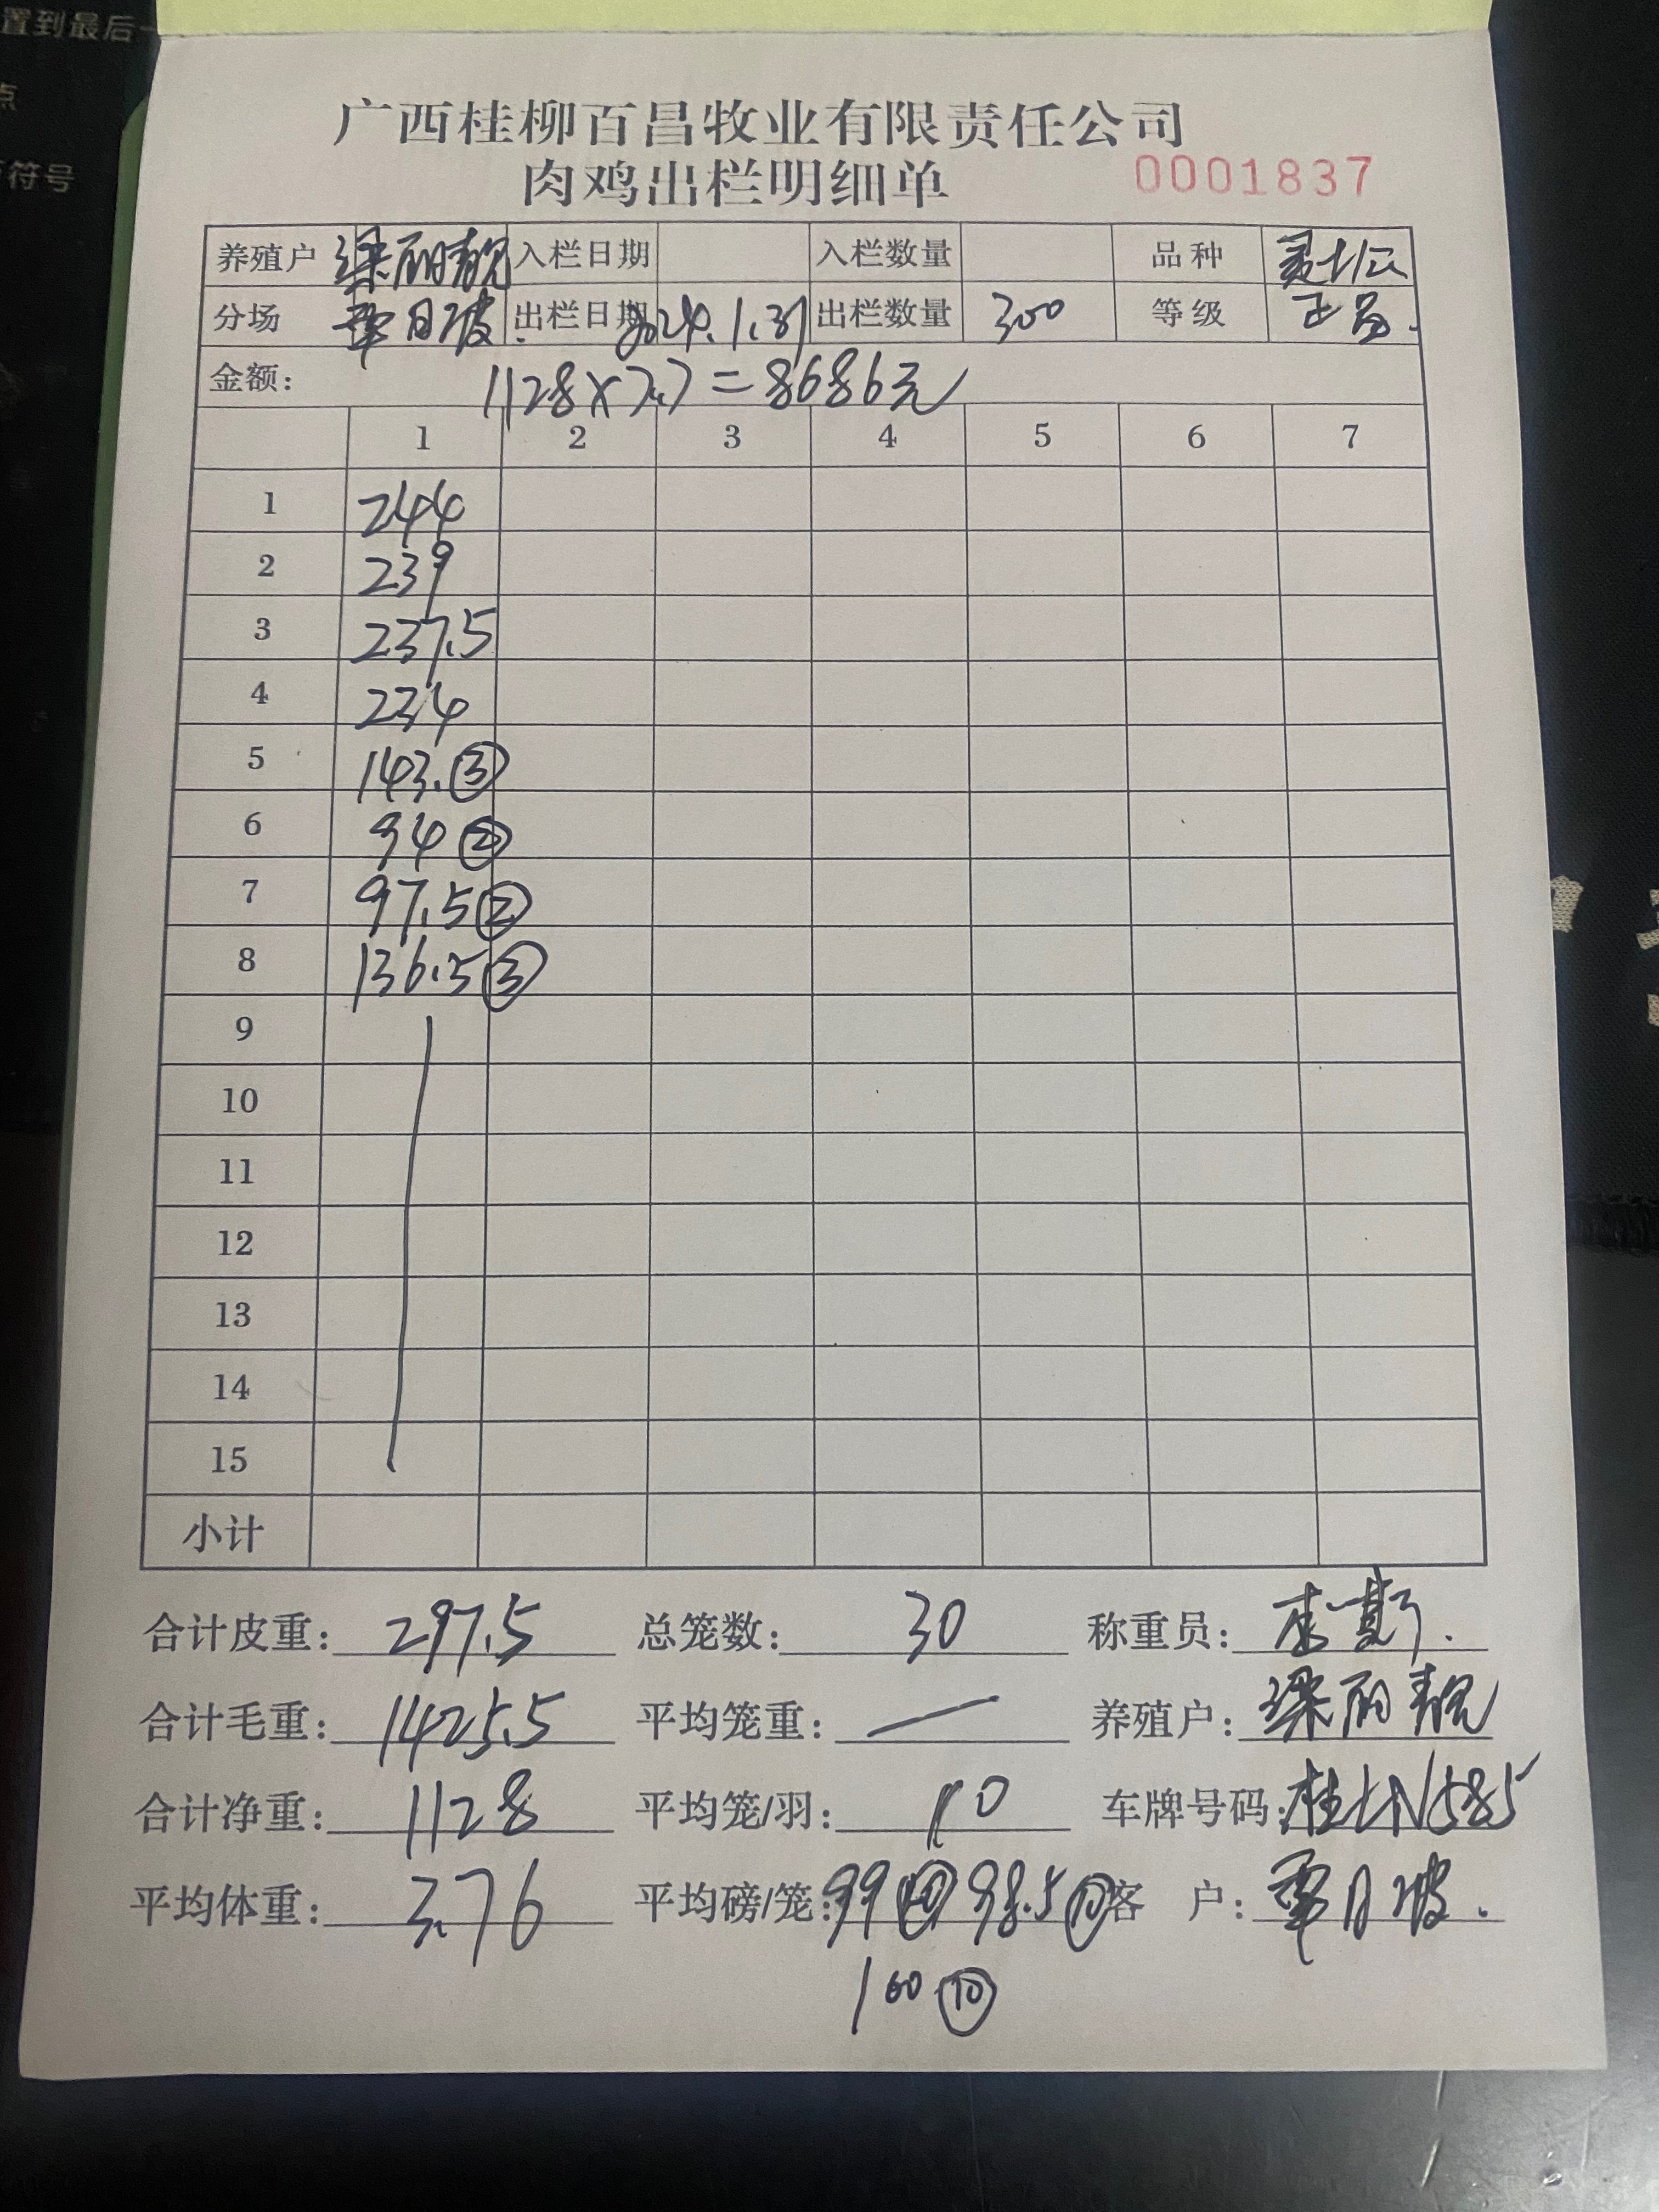 置到最后一
点
符号
广西桂柳百昌牧业有限责任公司
肉鸡出栏明细单 0001837
养殖户 梁丽靓 入栏日期 入栏数量 品种 灵土公
分场 覃月波. 出栏日期 2024.1.31 出栏数量 300 等级 正品.
金额: 1128×7.7=8686元
1 2 3 4 5 6 7
1 244
2 239
3 237.5
4 234
5 143.③
6 94②
7 97.5②
8 136.5③
9
10
11
12
13
14
15
小计
合计皮重: 297.5 总笼数: 30 称重员:
合计毛重: 1425.5 平均笼重: — 养殖户: 梁丽靓
合计净重: 1128 平均笼/羽: 10 车牌号码: 585
平均体重: 3.76 平均磅/笼: 99⑩ 98.5⑩ 客 户: 覃月波.
100⑩